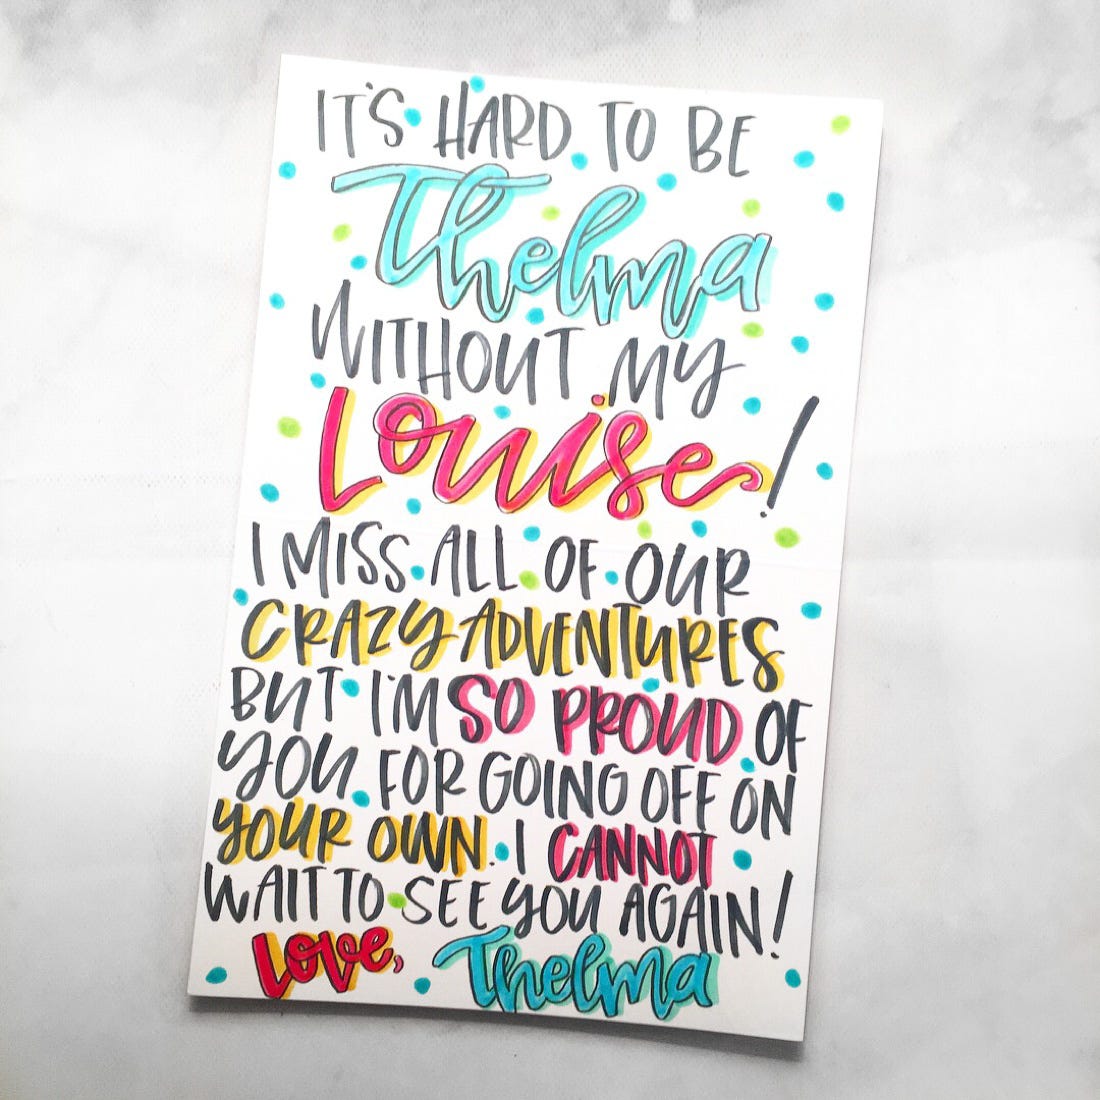 IT'S HARD TO BE
Thelma
WITHOUT MY
Louise!
I MISS ALL OF OUR
CRAZY ADVENTURES
BUT I'M SO PROUD OF
YOU FOR GOING OFF ON
YOUR OWN. I CANNOT
WAIT TO SEE YOU AGAIN!
Love, Thelma